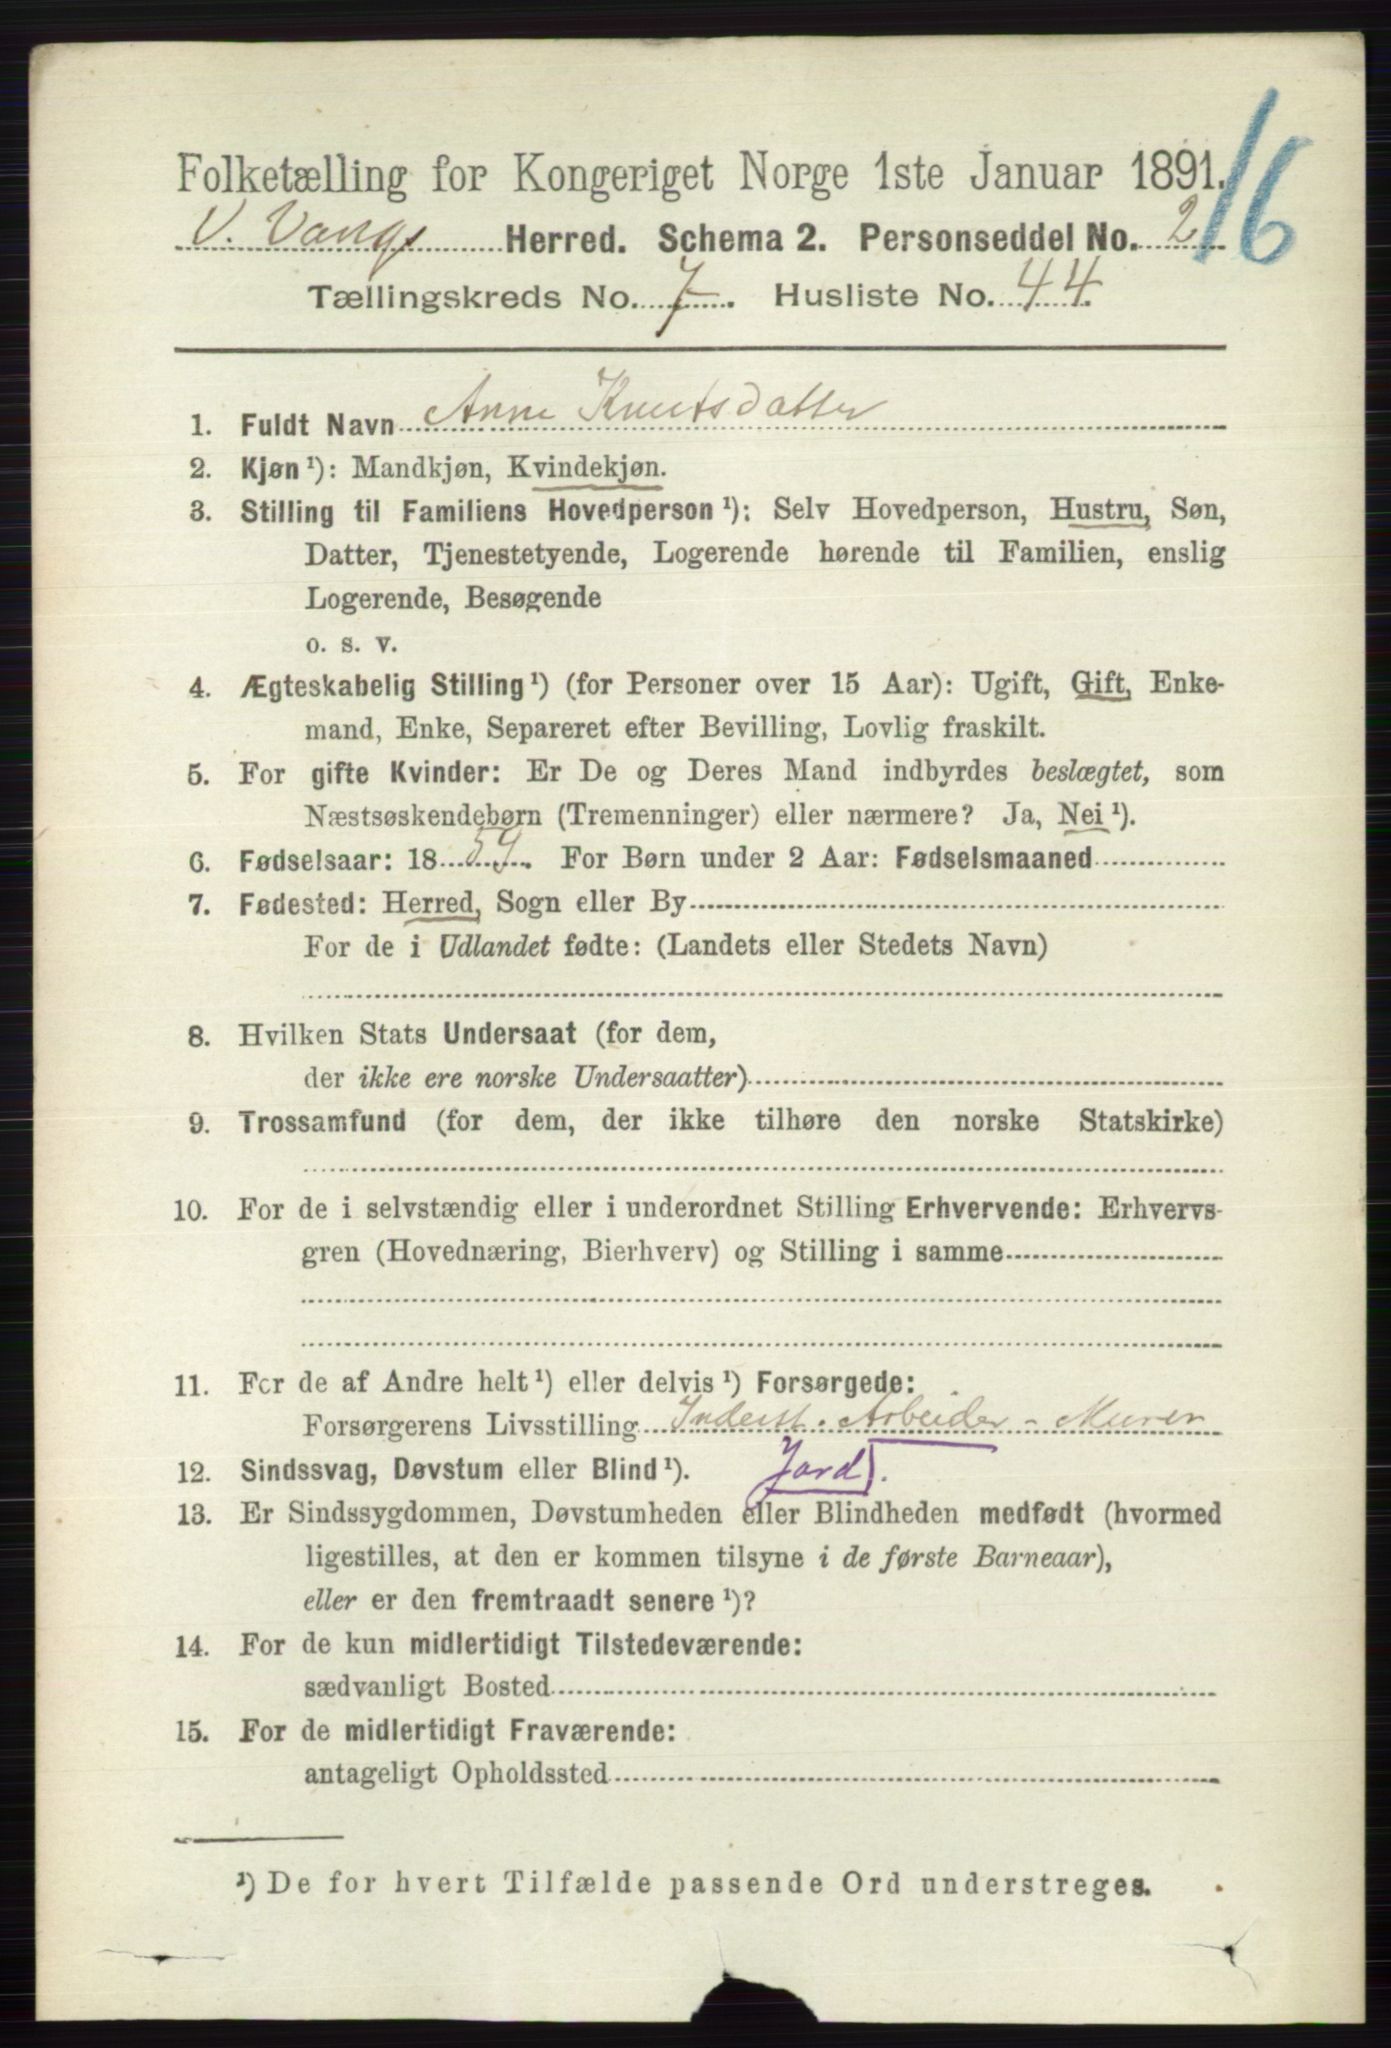 16
Folketælling for Kongeriget Norge 1ste Januar 1891.
V. Vangs Herred. Schema 2. Personseddel No. 2
Tællingskreds No. 7. Husliste No. 44.
1. Fuldt Navn Anne Knutsdatter
2. Kjøn ¹): Mandkjøn, Kvindekjøn.
3. Stilling til Familiens Hovedperson ¹): Selv Hovedperson, Hustru, Søn,
Datter, Tjenestetyende, Logerende hørende til Familien, enslig
Logerende, Besøgende
o. s. v.
4. Ægteskabelig Stilling ¹) (for Personer over 15 Aar): Ugift, Gift, Enke-
mand, Enke, Separeret efter Bevilling, Lovlig fraskilt.
5. For gifte Kvinder: Er De og Deres Mand indbyrdes beslægtet, som
Næstsøskendebørn (Tremenninger) eller nærmere? Ja, Nei ¹).
6. Fødselsaar: 1859. For Børn under 2 Aar: Fødselsmaaned
7. Fødested: Herred, Sogn eller By
For de i Udlandet fødte: (Landets eller Stedets Navn)
8. Hvilken Stats Undersaat (for dem,
der ikke ere norske Undersaatter)
9. Trossamfund (for dem, der ikke tilhøre den norske Statskirke)
10. For de i selvstændig eller i underordnet Stilling Erhvervende: Erhvervs-
gren (Hovednæring, Bierhverv) og Stilling i samme
11. For de af Andre helt ¹) eller delvis ¹) Forsørgede:
Forsørgerens Livsstilling Inderst. Arbeider - Murer
12. Sindssvag, Døvstum eller Blind ¹). Jord
13. Er Sindssygdommen, Døvstumheden eller Blindheden medfødt (hvormed
ligestilles, at den er kommen tilsyne i de første Barneaar),
eller er den fremtraadt senere ¹)?
14. For de kun midlertidigt Tilstedeværende:
sædvanligt Bosted
15. For de midlertidigt Fraværende:
antageligt Opholdssted
¹) De for hvert Tilfælde passende Ord understreges.